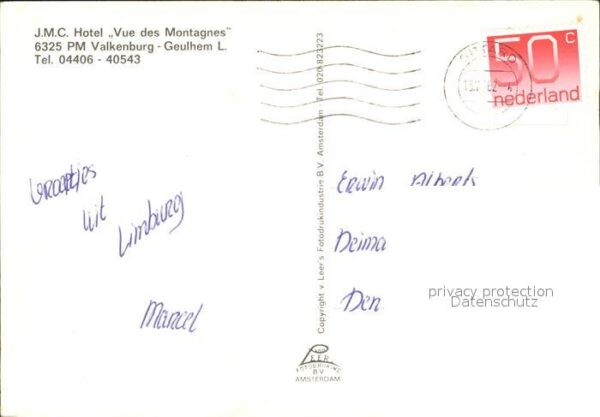 J.M.C. Hotel „Vue des Montagnes"
6325 PM Valkenburg - Geulhem L.
Tel. 04406 - 40543
50 C
nederland
Groetjes
uit
Limburg
Marcel
Erwin
Deima
Den
privacy protection
Datenschutz
Copyright v. Leer's Fotodrukindustrie B.V. Amsterdam Tel. 020-823223
van
LEER
FOTODRUKIND
B.V.
AMSTERDAM